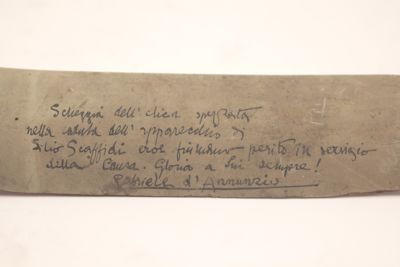 Scheggia dell'elica spezzata
nella caduta dell'apparecchio di
Silio Scaffidi eroe fiumano perito in servizio
della Causa. Gloria a Lui sempre!
Gabriele d'Annunzio